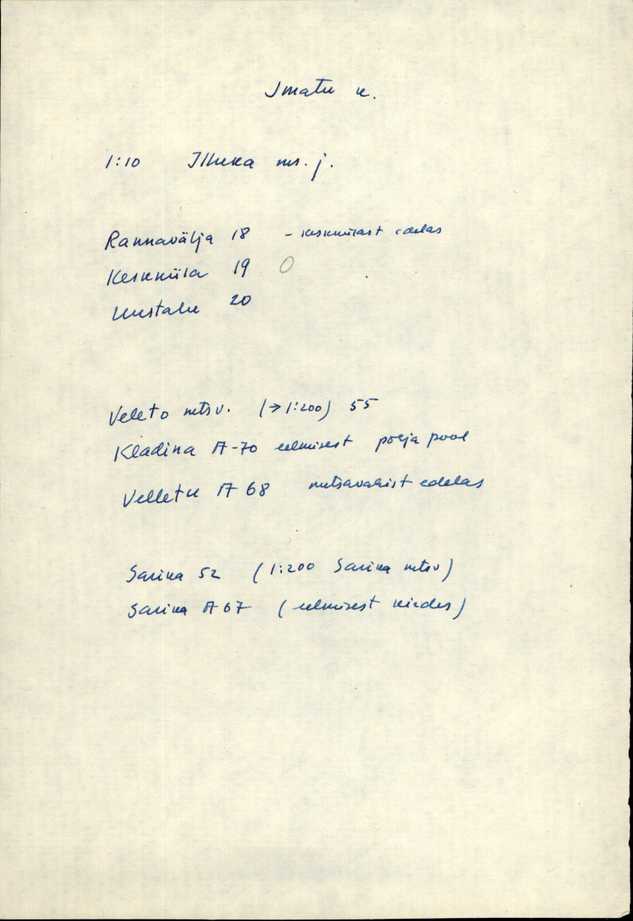 Imatu k.
1:10 Illuka ms. j.
Rannavälja 18 - keskusest edelas
Keskküla 19 0
Uustalu 20
Veleto metsv. (→1:200) 55
Kladina A-70 eelmisest põhja pool
Velletu A 68 metsavahist edelas
Sarika 52 (1:200 Sarika metsv)
Sarika A 67 (eelmisest kirdes)